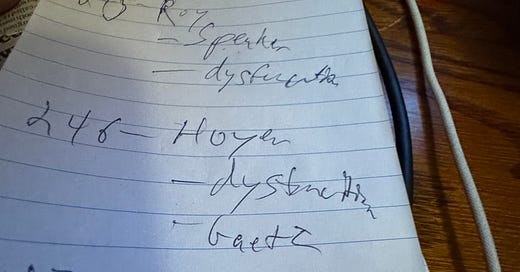 Roy
- Speaker
- dysfunction
246 - Hoyer
- dysfunction
- Gaetz